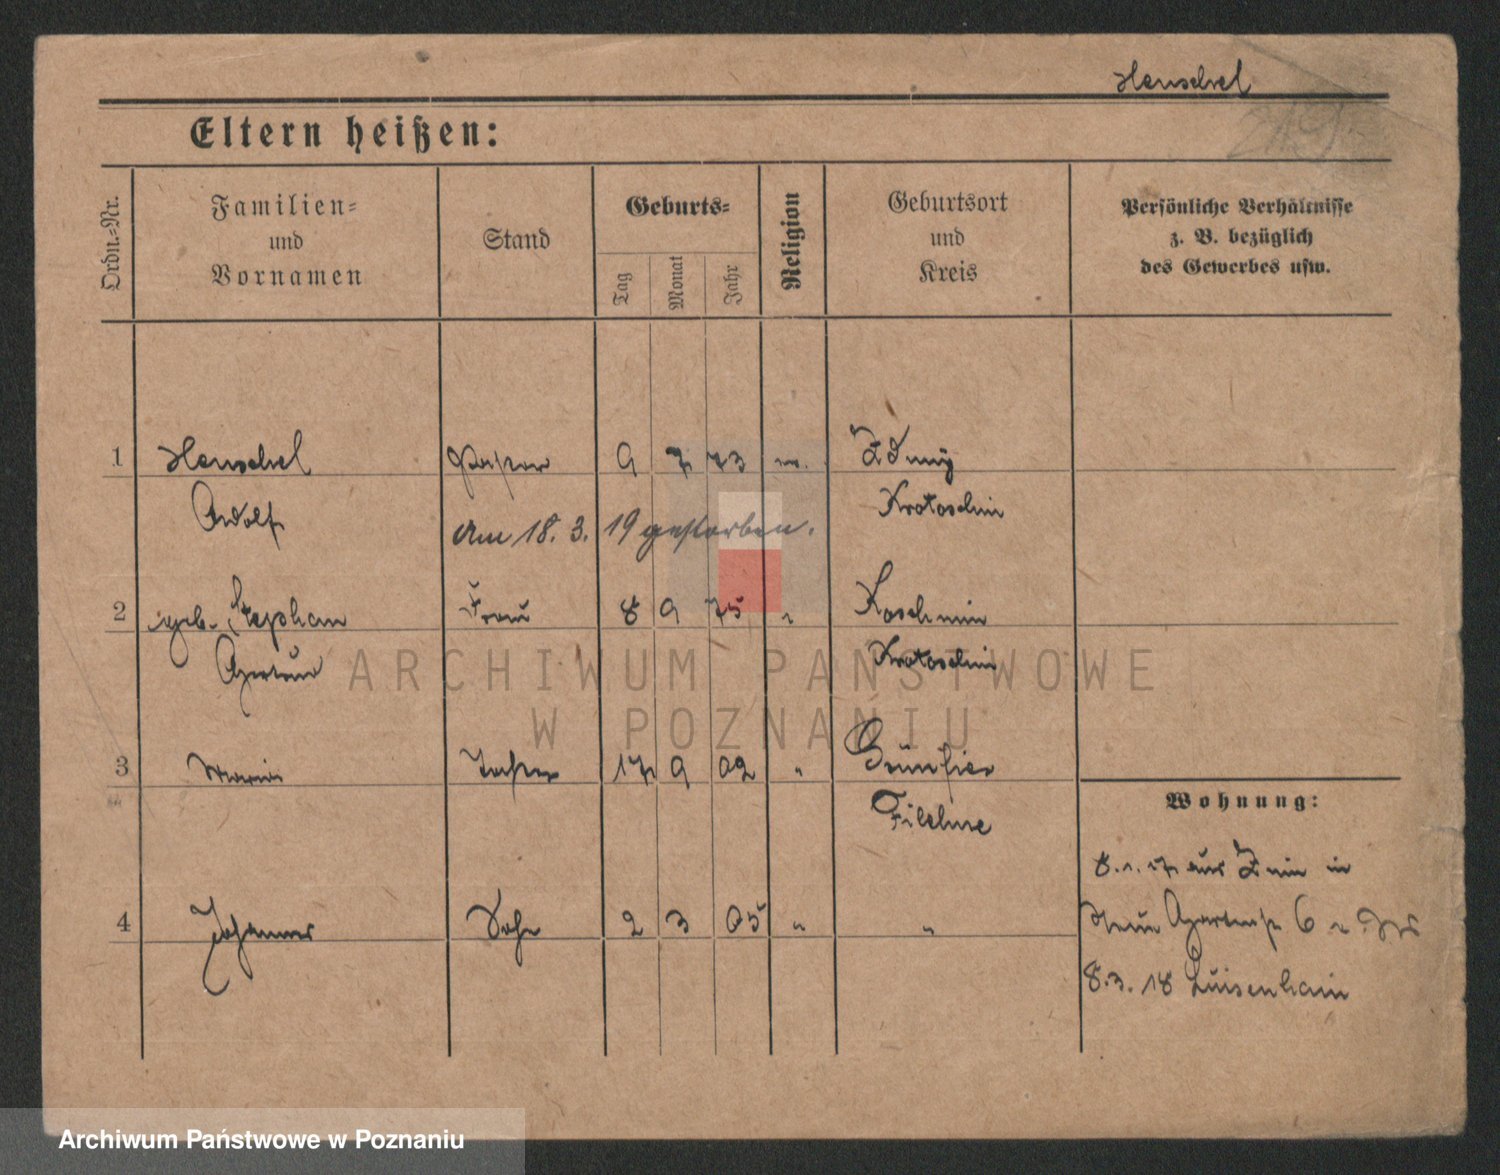 Henschel
Eltern heißen:
Ordn.=Nr.
Familien=
und
Vornamen
Stand
Geburts=
Tag
Monat
Jahr
Religion
Geburtsort
und
Kreis
Persönliche Verhältnisse
z. B. bezüglich
des Gewerbes usw.
1 Henschel Pastor 9 7 73 Zduny
Adolf Krotoschin
Am 18. 3. 19 gestorben.
2 geb. Stephan Frau 8 9 75 " Koschmin
Gertrud Krotoschin
3 Maria Tochter 17 9 02 "
Filehne
Wohnung:
8. 1. 17 aus Znin in
4 Johannes Sohn 2 3 05 " "
Neue Gartenstr 6
8. 3. 18 Luisenhain
ARCHIWUM PAŃSTWOWE
W POZNANIU
Archiwum Państwowe w Poznaniu